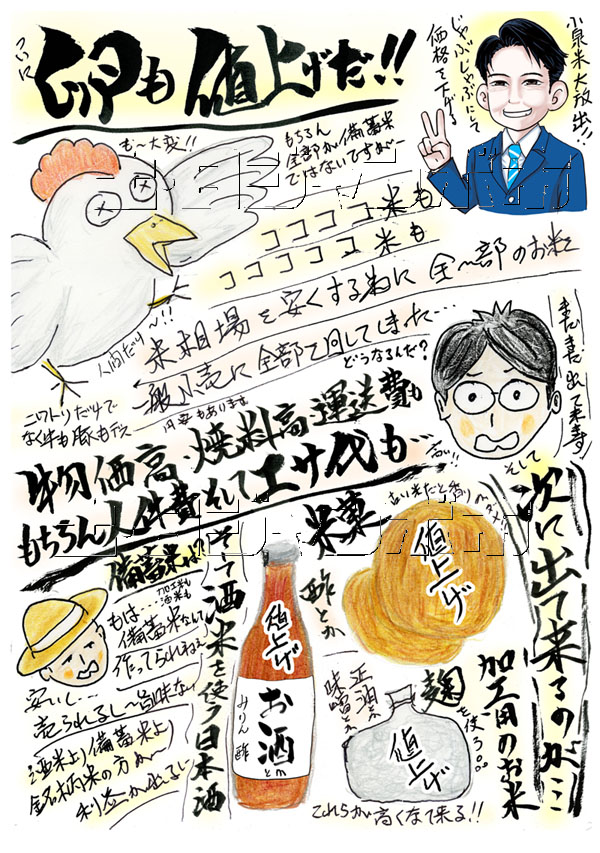 ついに
卵も値上げだ!!
小泉米大放出!!
じゃぶじゃぶにして
価格を下げる
も〜大変!!
もちろん
全部が備蓄米
ではないですが…
コココココ米も
コココココ米も
米相場を安くする為に全〜部のお米
一般小売に全部回してしまった…
どうなるんだ?
人間だけ〜!!
ニワトリだけで
なく牛も豚もデス
円安もあります
まだまだ出て来ます
物価高・燃料高・運送費も
もちろん人件費そしてエサ代も…
高い!!
そして
次に出て来るのが…
加工用のお米
米菓
古い米だと香りが
値上げ
酢とか
麹を使う
正油
味噌とか
値上げ
値上げ
お酒
みりん 酢
そして酒米を使う日本酒
備蓄米よ
加工米も
酒米も
もは…
備蓄米なんて
作ってられねぇ
安いし…
売られるし〜旨味ない
酒米より備蓄米より
銘柄米の方が〜
利益が出るし
これらが高くなって来る!!